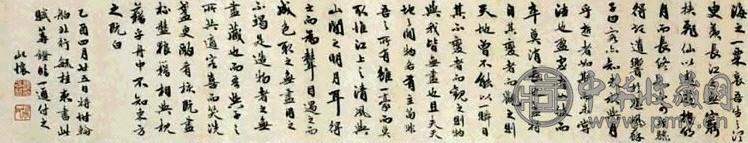 海之一粟哀吾生之須
臾羨長江之無窮
挾飛仙以遨遊抱明
月而長終知不可乎驟
得託遺響於悲風蘇
子曰客亦知夫水與月
乎逝者如斯而未嘗
往也盈虛者如彼而
卒莫消長也蓋將
自其變者而觀之則
天地曾不能以一瞬自
其不變者而觀之則物
與我皆無盡也且夫天
地之間物各有主苟非
吾之所有雖一毫而莫
取惟江上之清風與
山間之明月耳得
之而為聲目遇之而
成色取之無盡用之
不竭是造物者之無
盡藏也而吾與子之
所共適客喜而笑洗
盞更酌肴核既盡
杯盤狼籍相與枕
藉乎舟中不知東方
之既白
己酉四月廿五日將
北行書此
賦一過付之
中华收藏网